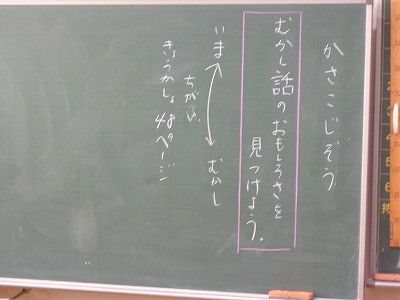 かさこじぞう
むかし話のおもしろさを
見つけよう。
いま ↔ むかし
ちがい
きょうかしょ48ページ